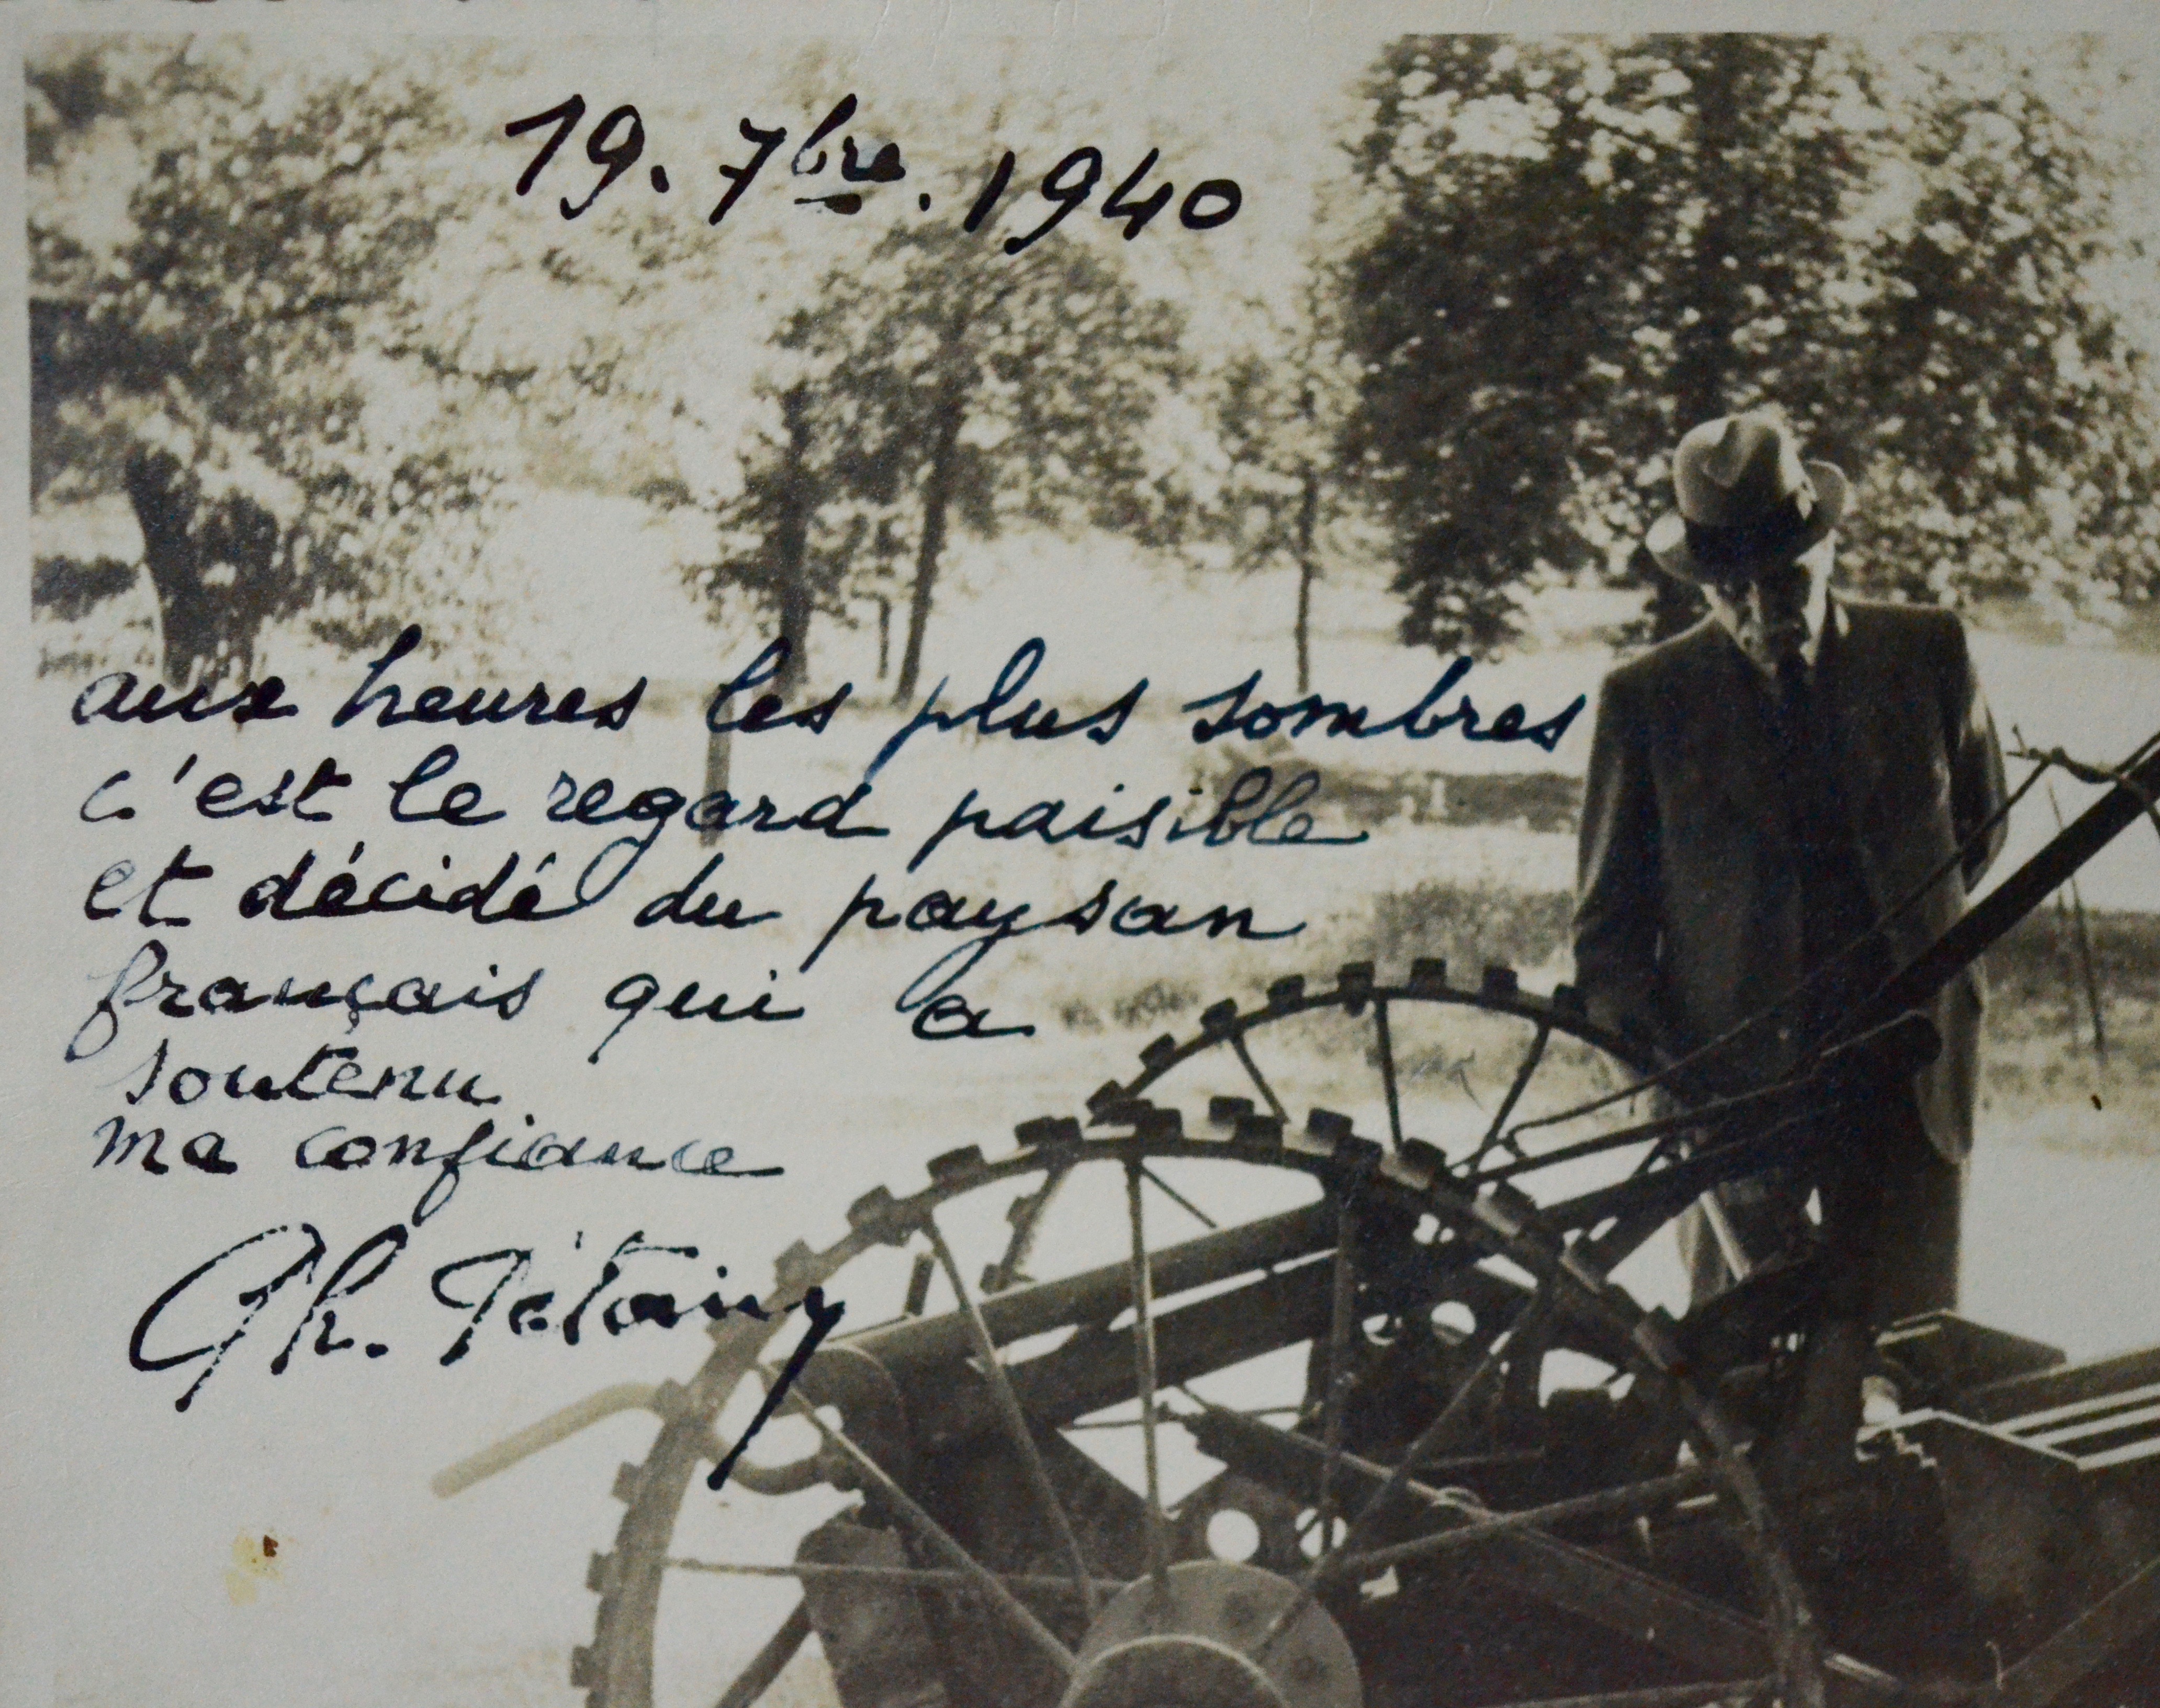 19. 7bre. 1940
aux heures les plus sombres
c'est le regard paisible
et décidé du paysan
français qui a
soutenu
ma confiance
Ph. Pétain